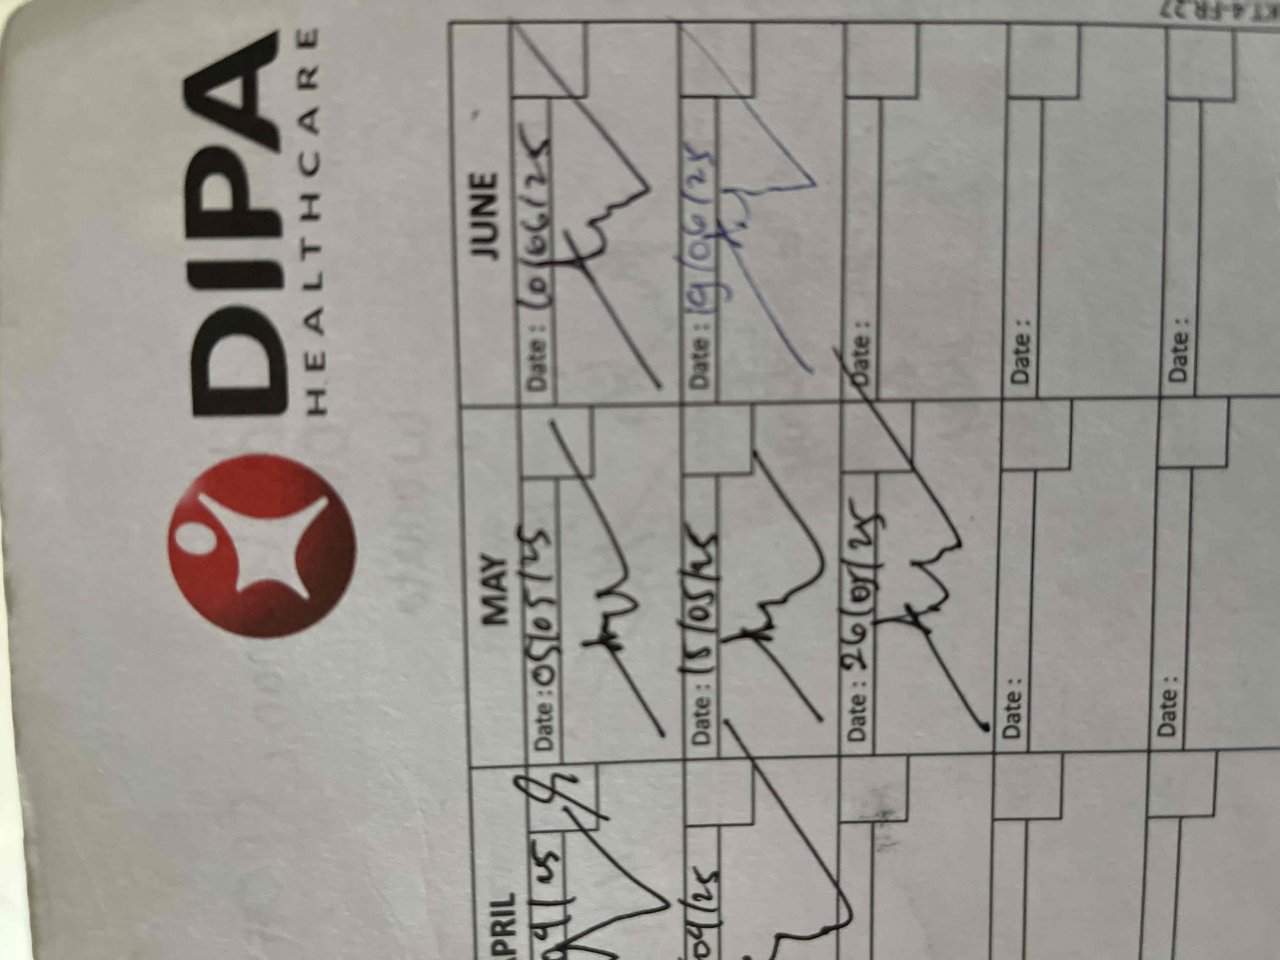 DIPA
HEALTHCARE
PRIL MAY JUNE
04/25 Date : 05/05/25 Date : 10/06/25
04/25 Date : 15/05/25 Date : 19/06/25
Date : 26/05/25 Date :
Date : Date :
Date : Date :
KT.4-FR.27